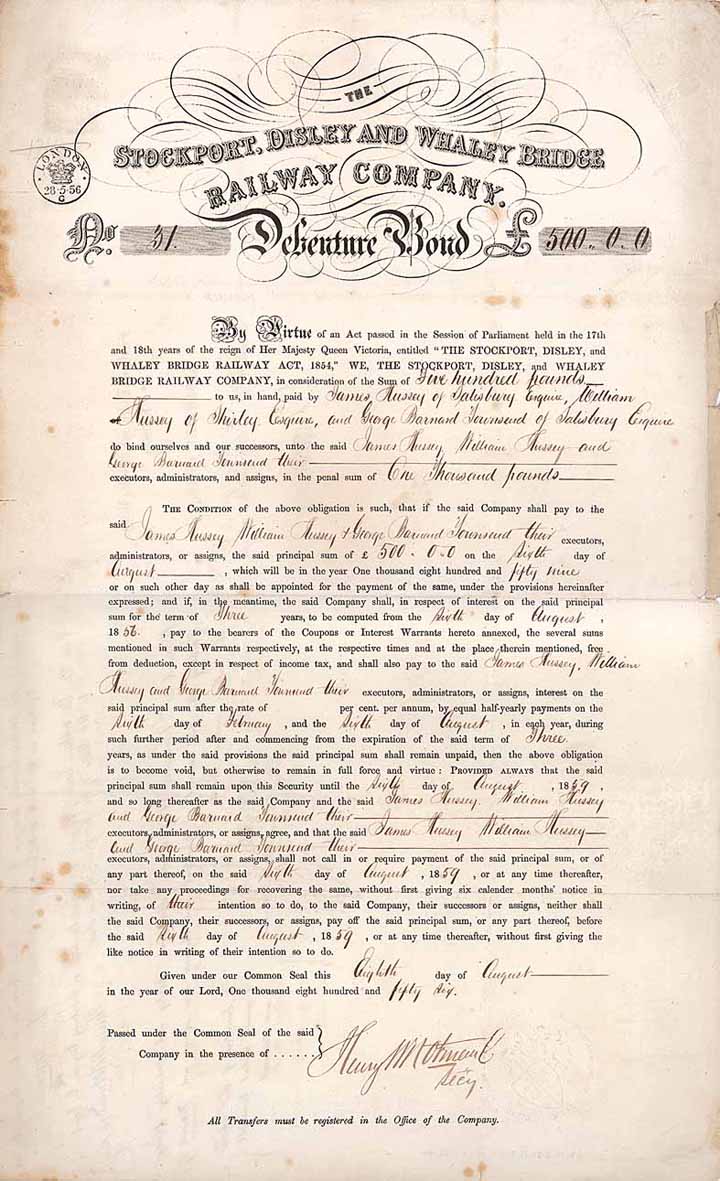 THE
STOCKPORT, DISLEY AND WHALEY BRIDGE
RAILWAY COMPANY.
LONDON
28·5·56
G
No. 31. Debenture Bond £ 500 .. 0 .. 0
By Virtue of an Act passed in the Session of Parliament held in the 17th
and 18th years of the reign of Her Majesty Queen Victoria, entitled "THE STOCKPORT, DISLEY, and
WHALEY BRIDGE RAILWAY ACT, 1854," WE, THE STOCKPORT, DISLEY, and WHALEY
BRIDGE RAILWAY COMPANY, in consideration of the Sum of Five hundred pounds
to us, in hand, paid by James Hussey of Salisbury Esquire, William
Hussey of Shirley Esquire, and George Barnard Townsend of Salisbury Esquire
do bind ourselves and our successors, unto the said James Hussey William Hussey and
George Barnard Townsend their
executors, administrators, and assigns, in the penal sum of One Thousand pounds
THE CONDITION of the above obligation is such, that if the said Company shall pay to the
said James Hussey William Hussey & George Barnard Townsend their executors,
administrators, or assigns, the said principal sum of £ 500 - 0 - 0 on the Sixth day of
August, which will be in the year One thousand eight hundred and fifty nine
or on such other day as shall be appointed for the payment of the same, under the provisions hereinafter
expressed; and if, in the meantime, the said Company shall, in respect of interest on the said principal
sum for the term of Three years, to be computed from the Sixth day of August,
1856, pay to the bearers of the Coupons or Interest Warrants hereto annexed, the several sums
mentioned in such Warrants respectively, at the respective times and at the place therein mentioned, free
from deduction, except in respect of income tax, and shall also pay to the said James Hussey, William
Hussey and George Barnard Townsend their executors, administrators, or assigns, interest on the
said principal sum after the rate of per cent. per annum, by equal half-yearly payments on the
Sixth day of February, and the Sixth day of August, in each year, during
such further period after and commencing from the expiration of the said term of Three
years, as under the said provisions the said principal sum shall remain unpaid, then the above obligation
is to become void, but otherwise to remain in full force and virtue: PROVIDED ALWAYS that the said
principal sum shall remain upon this Security until the Sixth day of August, 1859,
and so long thereafter as the said Company and the said James Hussey William Hussey
and George Barnard Townsend their
executors, administrators, or assigns, agree, and that the said James Hussey William Hussey
and George Barnard Townsend their
executors, administrators, or assigns, shall not call in or require payment of the said principal sum, or of
any part thereof, on the said Sixth day of August, 1859, or at any time thereafter,
nor take any proceedings for recovering the same, without first giving six calender months' notice in
writing, of their intention so to do, to the said Company, their successors or assigns, neither shall
the said Company, their successors, or assigns, pay off the said principal sum, or any part thereof, before
the said Sixth day of August, 1859, or at any time thereafter, without first giving the
like notice in writing of their intention so to do.
Given under our Common Seal this Eighth day of August
in the year of our Lord, One thousand eight hundred and fifty six.
Passed under the Common Seal of the said
Company in the presence of ......
Henry
Secy.
All Transfers must be registered in the Office of the Company.